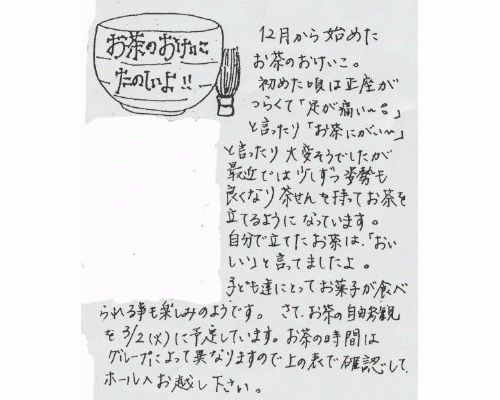 お茶のおけいこ
たのしいよ!!
12月から始めた
お茶のおけいこ。
初めた頃は正座が
つらくて「足が痛い〜。」
と言ったり「お茶にがい〜」
と言ったり大変そうでしたが
最近では少しずつ姿勢も
良くなり茶せんを持ってお茶を
立てるようになっています。
自分で立てたお茶は、「おい
しい」と言ってましたよ。
子ども達にとってお菓子が食べ
られる事も楽しみのようです。さて、お茶の自由参観
を3/2(火)に予定しています。お茶の時間は
グループによって異なりますので上の表で確認して、
ホールへお越し下さい。